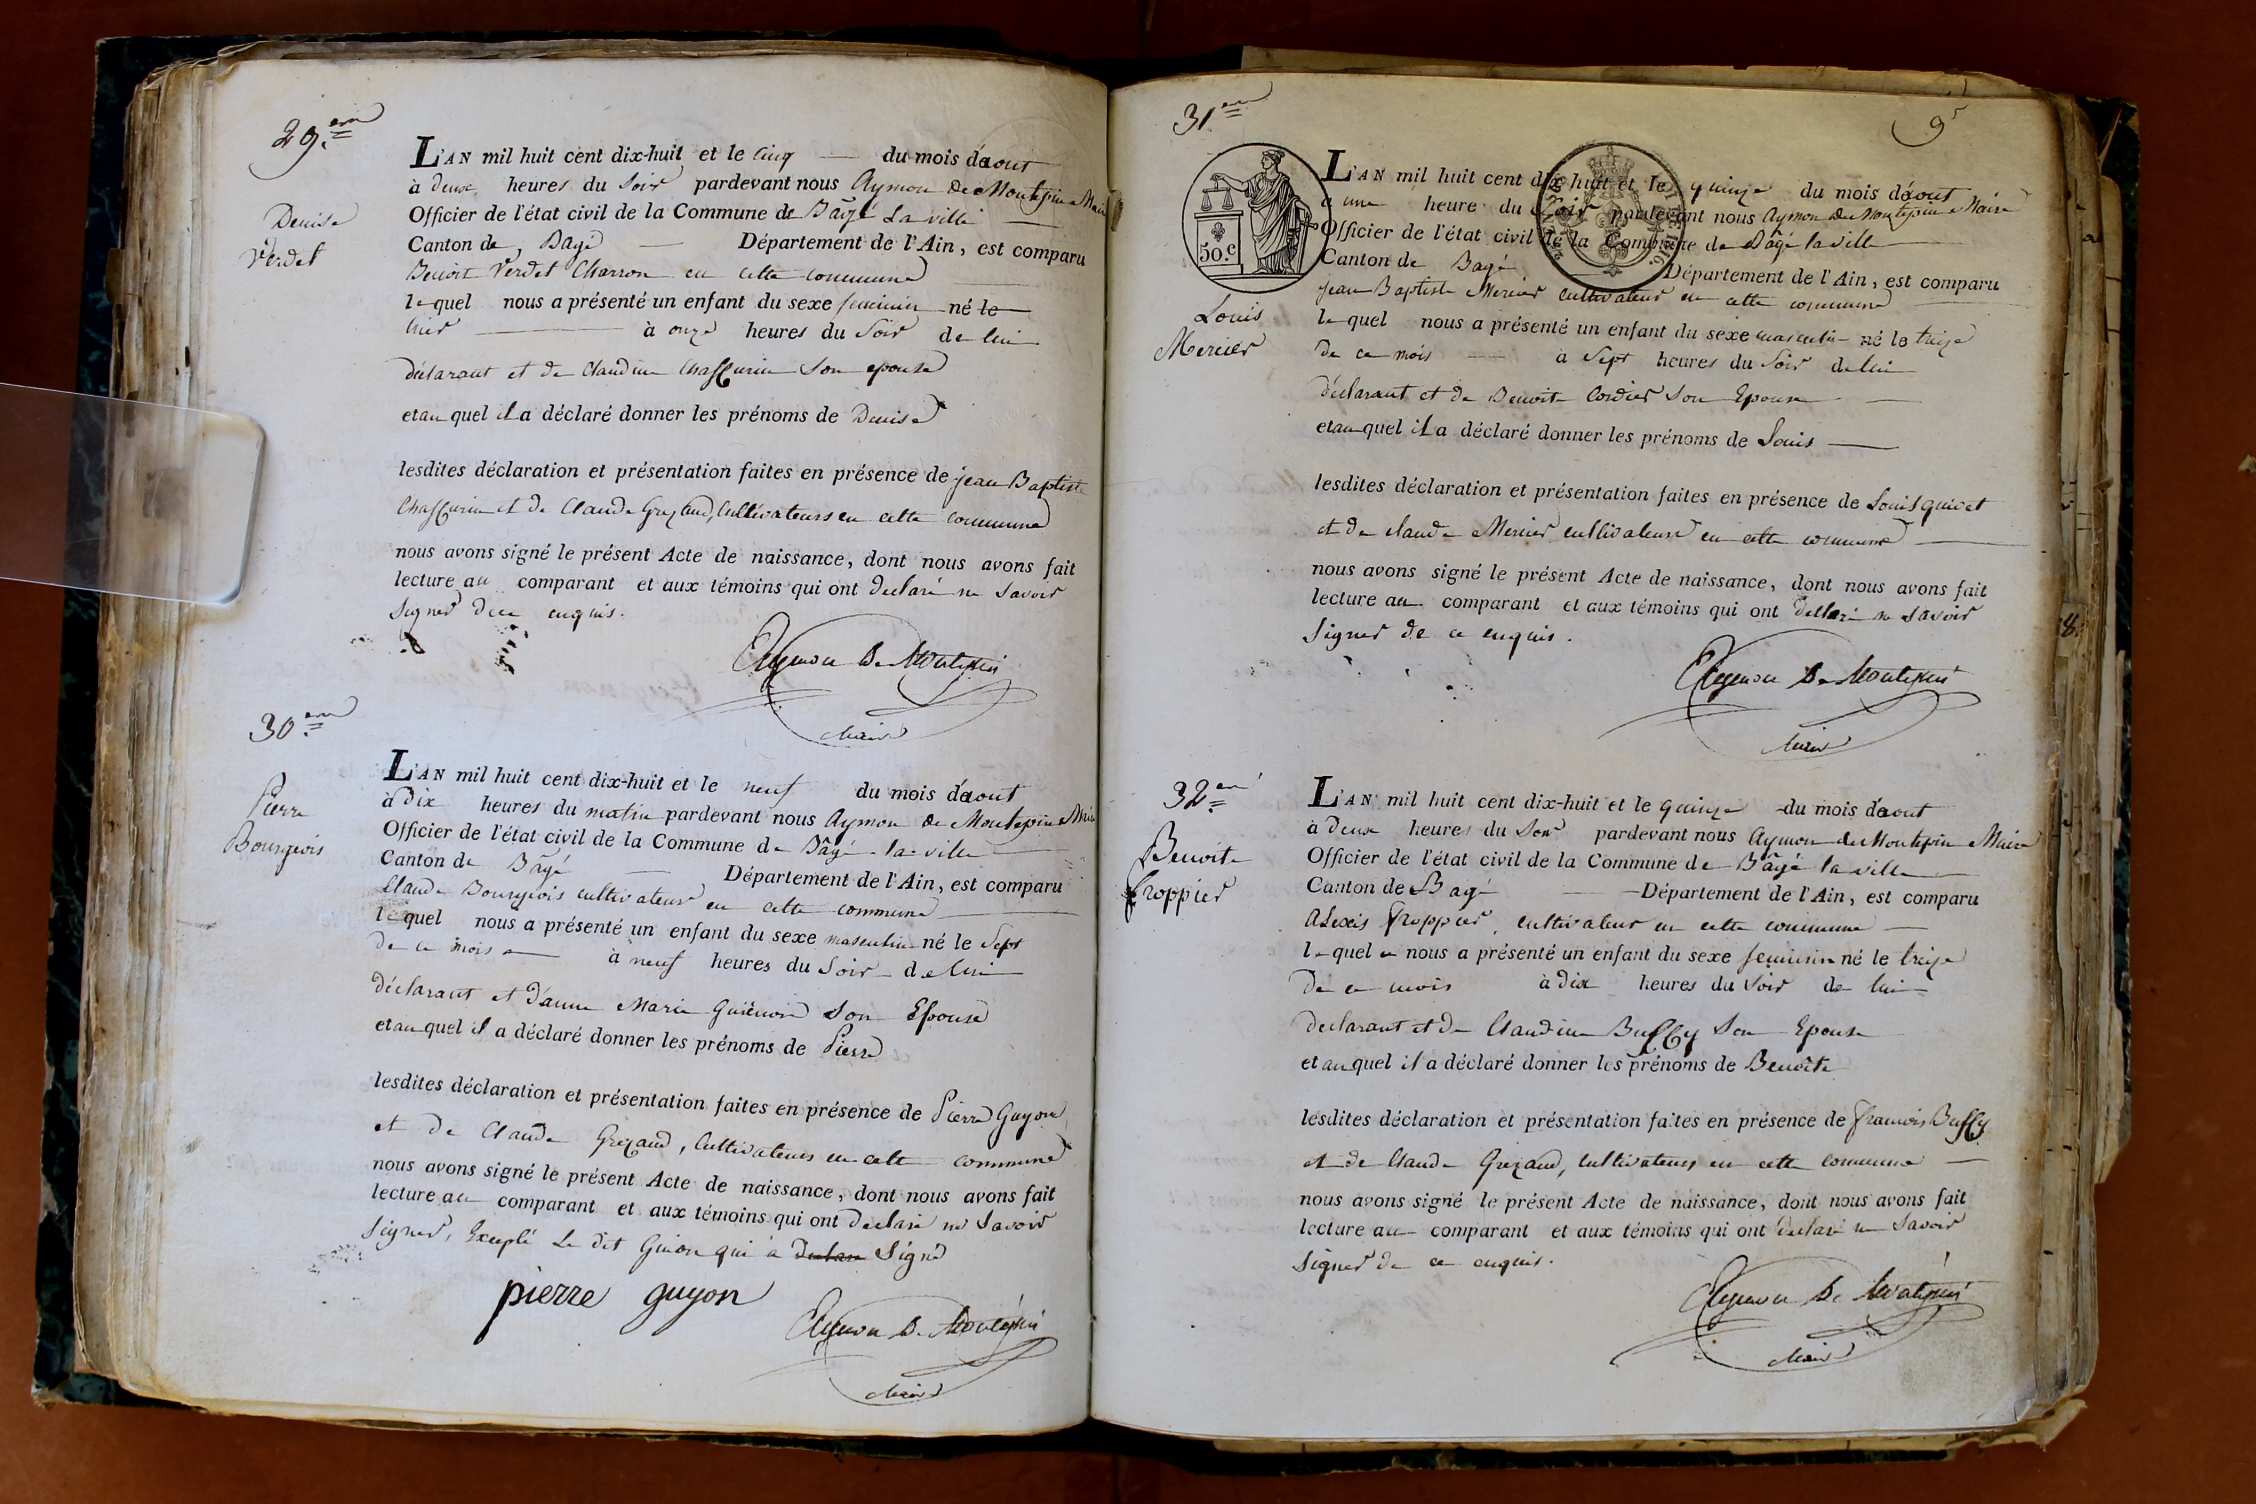 29.em
Denise
Verdet
L'AN mil huit cent dix-huit et le cinq du mois d'aout
à deux heures du Soir pardevant nous Aymon de Montepin Maire
Officier de l'état civil de la Commune de Bâgé La ville
Canton de Bagé Département de l'Ain, est comparu
Benoit Verdet Charron en cette commune
lequel nous a présenté un enfant du sexe feminin né le
hier à onze heures du Soir de lui
déclarant et de Claudine Chassurin Son epouse
et au quel il a déclaré donner les prénoms de Denise
lesdites déclaration et présentation faites en présence de jean Baptiste
Chassurin et de Claude Grezaud, Cultivateurs en cette commune
nous avons signé le présent Acte de naissance, dont nous avons fait
lecture au comparant et aux témoins qui ont declaré ne Savoir
Signer de ce enquis.
Aymon De Montepin
Maire
30.em
Pierre
Bourgeois
L'AN mil huit cent dix-huit et le neuf du mois d'aout
à dix heures du matin pardevant nous Aymon de Montepin Maire
Officier de l'état civil de la Commune de Bâgé la ville
Canton de Bâgé Département de l'Ain, est comparu
Claude Bourgeois cultivateur en cette commune
lequel nous a présenté un enfant du sexe masculin né le Sept
de ce mois à neuf heures du Soir de lui
déclarant et d'anne Marie Guienon Son Epouse
et au quel il a déclaré donner les prénoms de Pierre
lesdites déclaration et présentation faites en présence de Pierre Guyon
et de Claude Grezaud, Cultivateurs en cette commune
nous avons signé le présent Acte de naissance, dont nous avons fait
lecture au comparant et aux témoins qui ont declaré ne Savoir
Signer, Excepté Le dit Guion qui à declaré Signé
pierre guyon
Aymon De Montepin
Maire
31em
9
50.c
Louis
Mercier
L'AN mil huit cent dix-huit et le quinze du mois d'aout
à une heure du Soir pardevant nous Aymon de Montepin Maire
Officier de l'état civil de la Commune de Bâgé la ville
Canton de Bagé Département de l'Ain, est comparu
Jean Baptiste Mercier cultivateur en cette commune
lequel nous a présenté un enfant du sexe masculin né le treize
de ce mois à Sept heures du Soir de lui
déclarant et de Benoite Cordier Son Epouse
et au quel il a déclaré donner les prénoms de Louis
lesdites déclaration et présentation faites en présence de Louis quivet
et de claude Mercier cultivateurs en cette commune
nous avons signé le présent Acte de naissance, dont nous avons fait
lecture au comparant et aux témoins qui ont declaré ne Savoir
Signer de ce enquis.
Aymon De Montepin
Maire
32em
Benoite
froppier
L'AN mil huit cent dix-huit et le quinze du mois d'aout
à deux heures du Soir pardevant nous Aymon de Montepin Maire
Officier de l'état civil de la Commune de Bâgé la ville
Canton de Bagé Département de l'Ain, est comparu
Alexis froppier, cultivateur en cette commune
lequel nous a présenté un enfant du sexe feminin né le treize
de ce mois à dix heures du Soir de lui
declarant et de Claudine Buffy Son Epouse
et au quel il a déclaré donner les prénoms de Benoite
lesdites déclaration et présentation faites en présence de francois Buffy
et de Claude Grezaud, Cultivateurs en cette commune
nous avons signé le présent Acte de naissance, dont nous avons fait
lecture au comparant et aux témoins qui ont declaré ne Savoir
Signer de ce enquis.
Aymon De Montepin
Maire